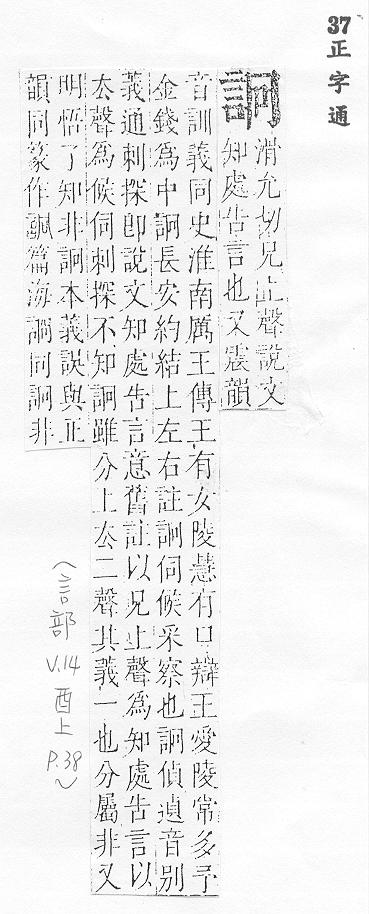 37正字通
詗
滑允切兄上聲說文
知處告言也又震韻
音訓義同史淮南厲王傳王有女陵慧有口辯王愛陵常多予
金錢爲中詗長安約結上左右註詗伺候采察也詗偵遉音別
義通刺探卽說文知處告言意舊註以兄上聲爲知處告言以
厺聲爲候伺刺探不知詗雖分上厺二聲其義一也分屬非又
明悟了知非詗本義誤與正
韻同篆作詗篇海詗同詗非
(言部 V.14 酉上 P.38~